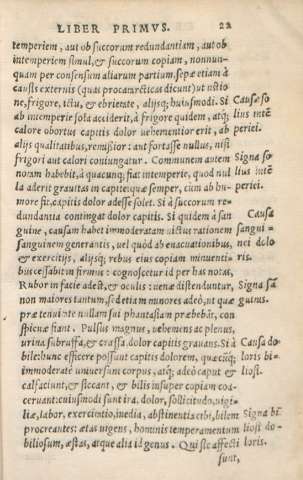 LIBER PRIMVS. 22
temperiem, aut ob succorum redundantiam, aut ob
intemperiem simul, & succorum copiam, nonnun-
quam per consensum aliarum partium, sępe etiam à
causis externis (quas procatarcticas dicunt) ut ustio
ne, frigore, ictu, & ebrietate, alijsq; huiusmodi. Si
ab intemperie sola acciderit, à frigore quidem, atq;
calore obortus capitis dolor uehementior erit, ab
alijs qualitatibus, remissior: aut fortasse nullus, nisi
frigori aut calori coniungatur. Communem autem
notam habebit, à quacunq; fiat intemperie, quod nul
la aderit grauitas in capite: quæ semper, cum ab hu-
more fit, capitis dolor adesse solet. Si à succorum re-
dundantia contingat dolor capitis. Si quidem à san
guine, causam habet immoderatam uictus rationem
sanguinem generantis, uel quòd ab euacuationibus,
& exercitijs, alijsq; rebus eius copiam minuenti-
bus cessabit infirmus: cognoscetur id per has notas,
Rubor in facie adest, & oculis: uenæ distenduntur,
non maiores tantum, sed etiam minores adeò, ut quæ
præ tenuitate nullam sui phantasiam præbebāt, con
spicuæ fiant. Pulsus magnus, uehemens ac plenus,
urina subruffa, & crassa, dolor capitis grauans. Si à
bile: hunc efficere possunt capitis dolorem, quæcūq;
immoderatè uniuersum corpus, atq; adeò caput &
calfaciunt, & siccant, & bilis insuper copiam coa-
ceruant: cuiusmodi sunt ira, dolor, sollicitudo, uigi-
liæ, labor, exercitio, inedia, abstinentia cibi, bilem
procreantes: ætas uigens, hominis temperamentum
biliosum, æstas, atque alia id genus. Qui sic affecti
sunt,
Causæ so
lius intē
periei.
Signa so
lius intē
periei.
Causæ
sangui
nei dolo
ris.
Signa sā
guinis.
Causæ do
loris bi-
liosi.
Signa bi
liosi do-
loris.